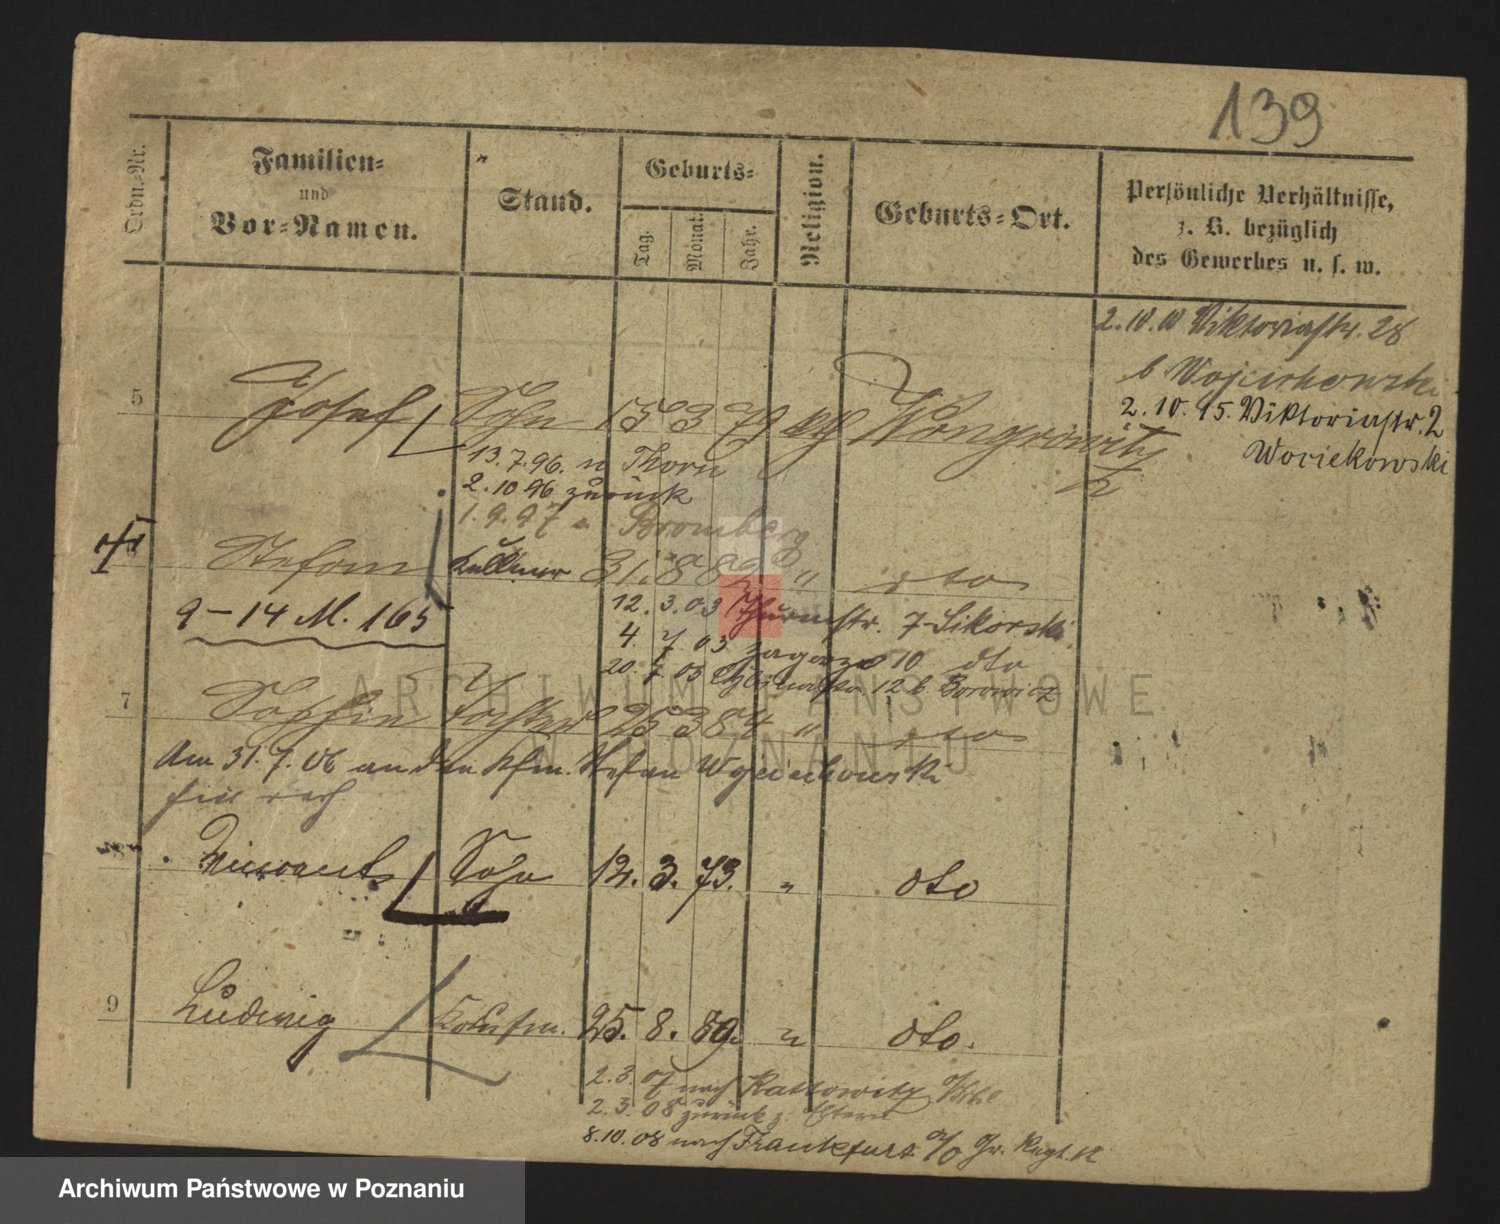 139
Ordn.-Nr.
Familien-
und
Vor-Namen.
Stand.
Geburts-
Tag.
Monat.
Jahr.
Religion.
Geburts-Ort.
Persönliche Verhältnisse,
z. B. bezüglich
des Gewerbes u. s. w.
2. 10. 10 Viktoriastr. 28
b Wojciechowski
2. 10. 15. Viktoriastr. 2
Wociekowski
5 Josef Sohn 15 3 79 kth Wongrowitz
13. 7. 96. n Thorn
2. 10 96 zurück
1. 9. 97 n Bromberg
Stefan 31. 8 82 " dto
9-14 M. 165
12. 3. 03 Thurmstr. 7 Sikorski
4. 7 03 Zagorze 10 dto
20. 7. 03 12 b. Borowicz
7 Sophie Tochter 25 3 84 " dto
Am 31. 7. 06 an den Kfm. Stefan Wojciechowski
8 Vincent Sohn 12. 3. 73. " dto
9 Ludwig Kaufm. 25. 8. 89. " dto.
2. 3. 07 nach Kattowitz
2. 3. 08 zurück z. Eltern
8. 10. 08 nach Frankfurt a/O Gr. Regt. 12
ARCHIWUM PAŃSTWOWE
W POZNANIU
Archiwum Państwowe w Poznaniu